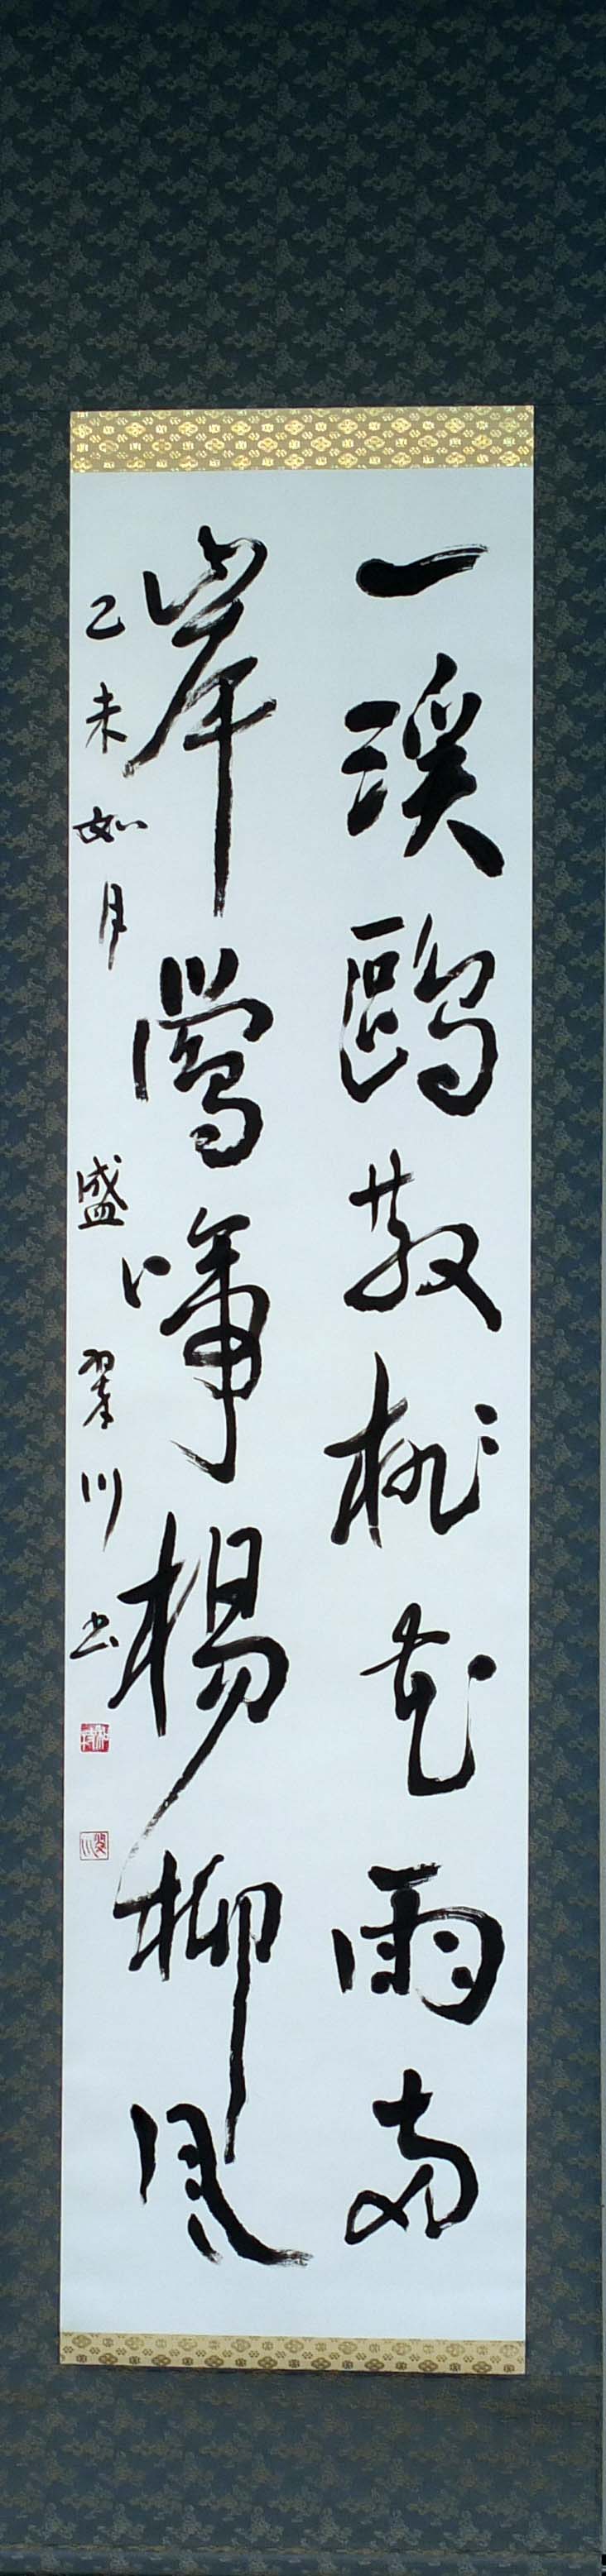 一溪鷗散桃花雨両
岸鶯啼楊柳風
乙未如月 盛 翠川書